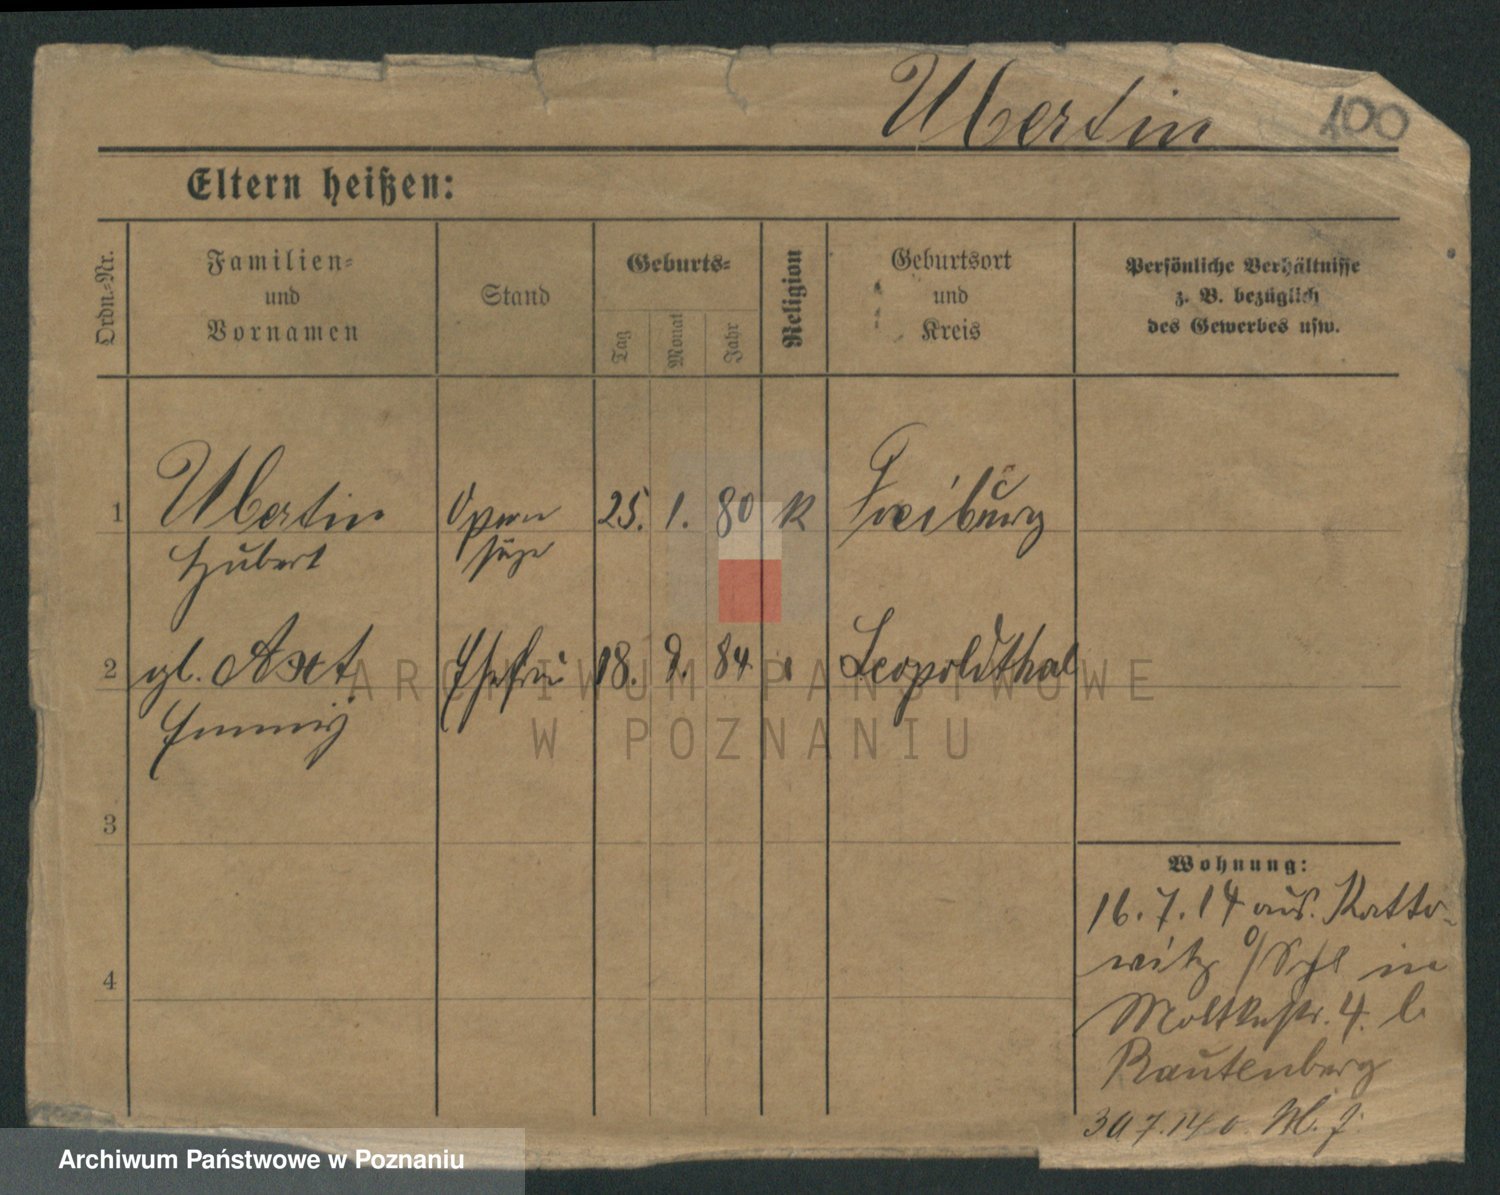 Ubertin 100
Eltern heißen:
Ordn.-Nr.
Familien-
und
Vornamen
Stand
Geburts-
Tag
Monat
Jahr
Religion
Geburtsort
und
Kreis
Persönliche Verhältnisse
z. B. bezüglich
des Gewerbes usw.
1 Ubertin Opern 25. 1. 80 k Freiburg
Hubert sänger
2 gb. Axt Ehefrau 18. 9. 84 Leopoldthal
Emmy
3
4
Wohnung:
16. 7. 14 aus Katto-
witz O/Schl in
Moltkestr. 4. b.
Rautenberg
30 7. 14
ARCHIWUM PAŃSTWOWE
W POZNANIU
Archiwum Państwowe w Poznaniu